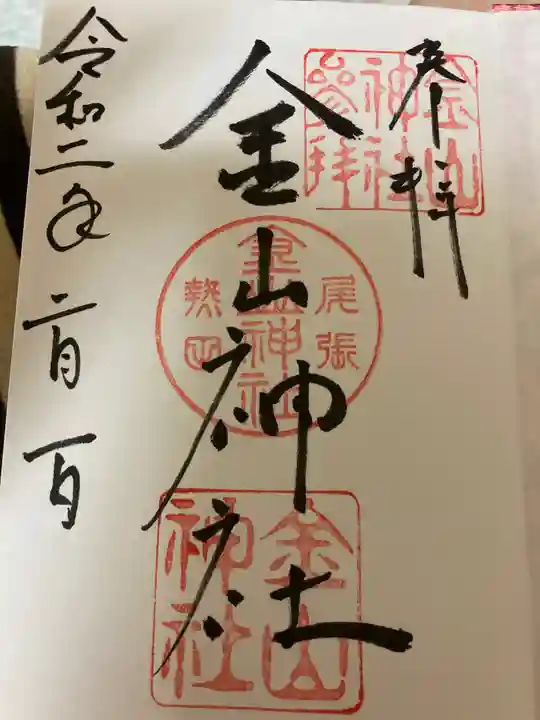 奉拝
金山神社参拝
金山神社
尾張
金山神社
熱田
金山神社
令和二年二月一日